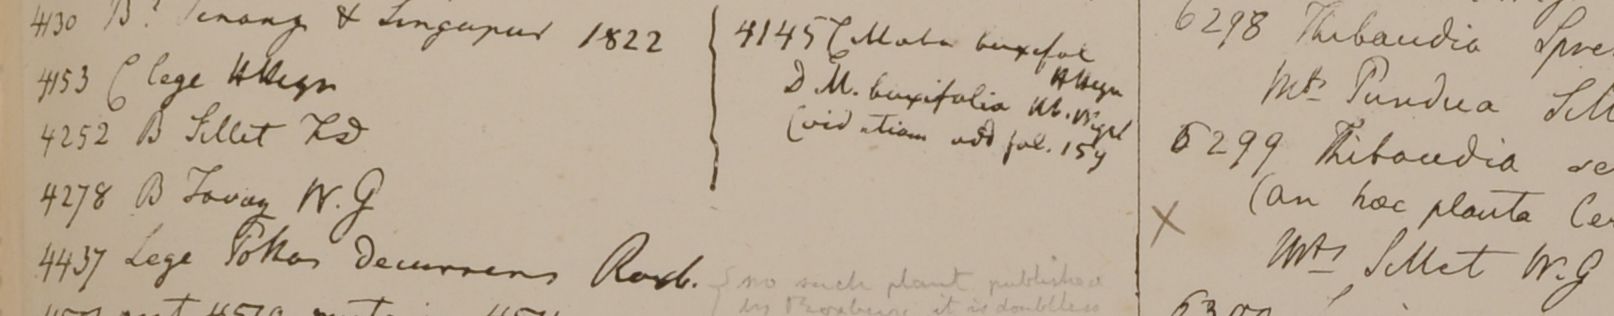 4130 B? Penang & Singapur 1822
4153 C lege HHeyn
4252 B Sillet FD
4278 B Tavoy W.G
4437 Lege Pothos decurrens Roxb.
4145 C Maba buxifol
HHeyn
D M. buxifolia Hb. Wight
(vid etiam add fol. 159
no such plant published
by Roxburgh it is doubtless
6298 Thibaudia
Mts Pundua Sill
6299 Thibaudia
(an hæc planta
X
Mts Sillet W.G